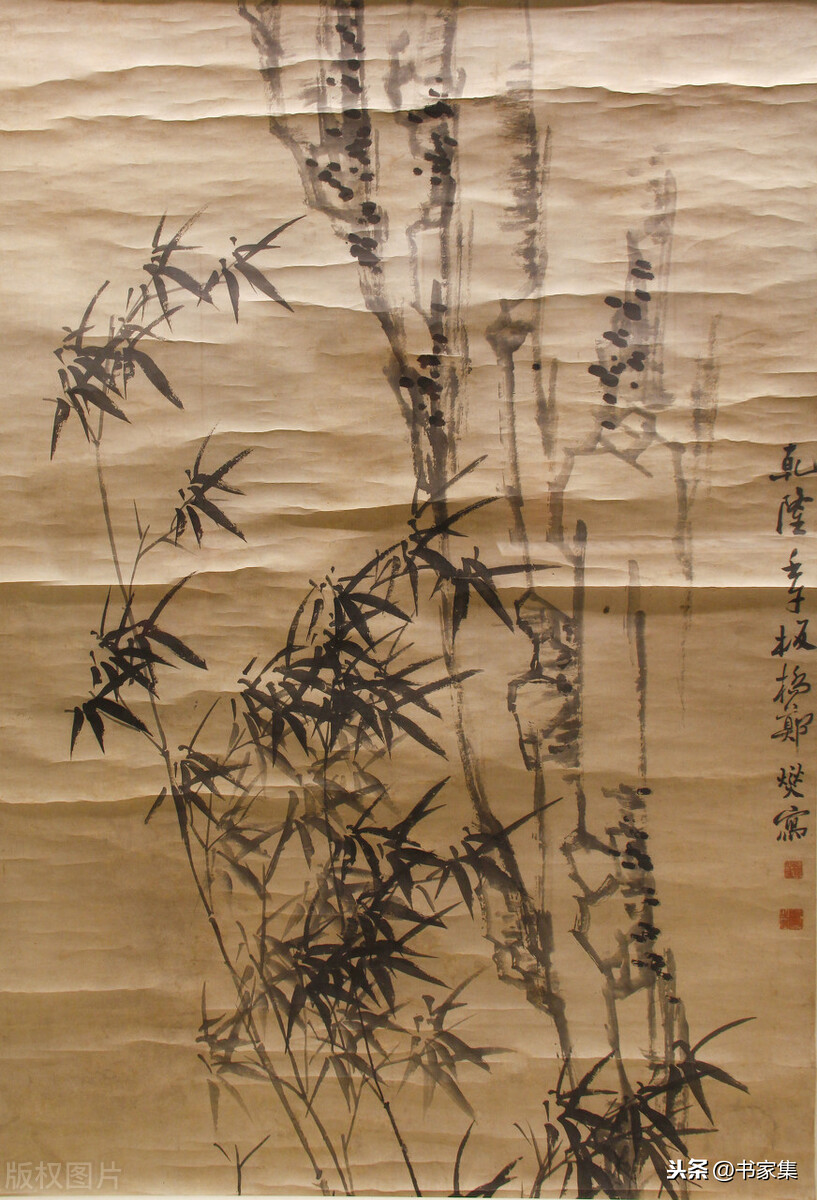 乾隆壬午板橋鄭燮寫
版权图片
头条 @书家集